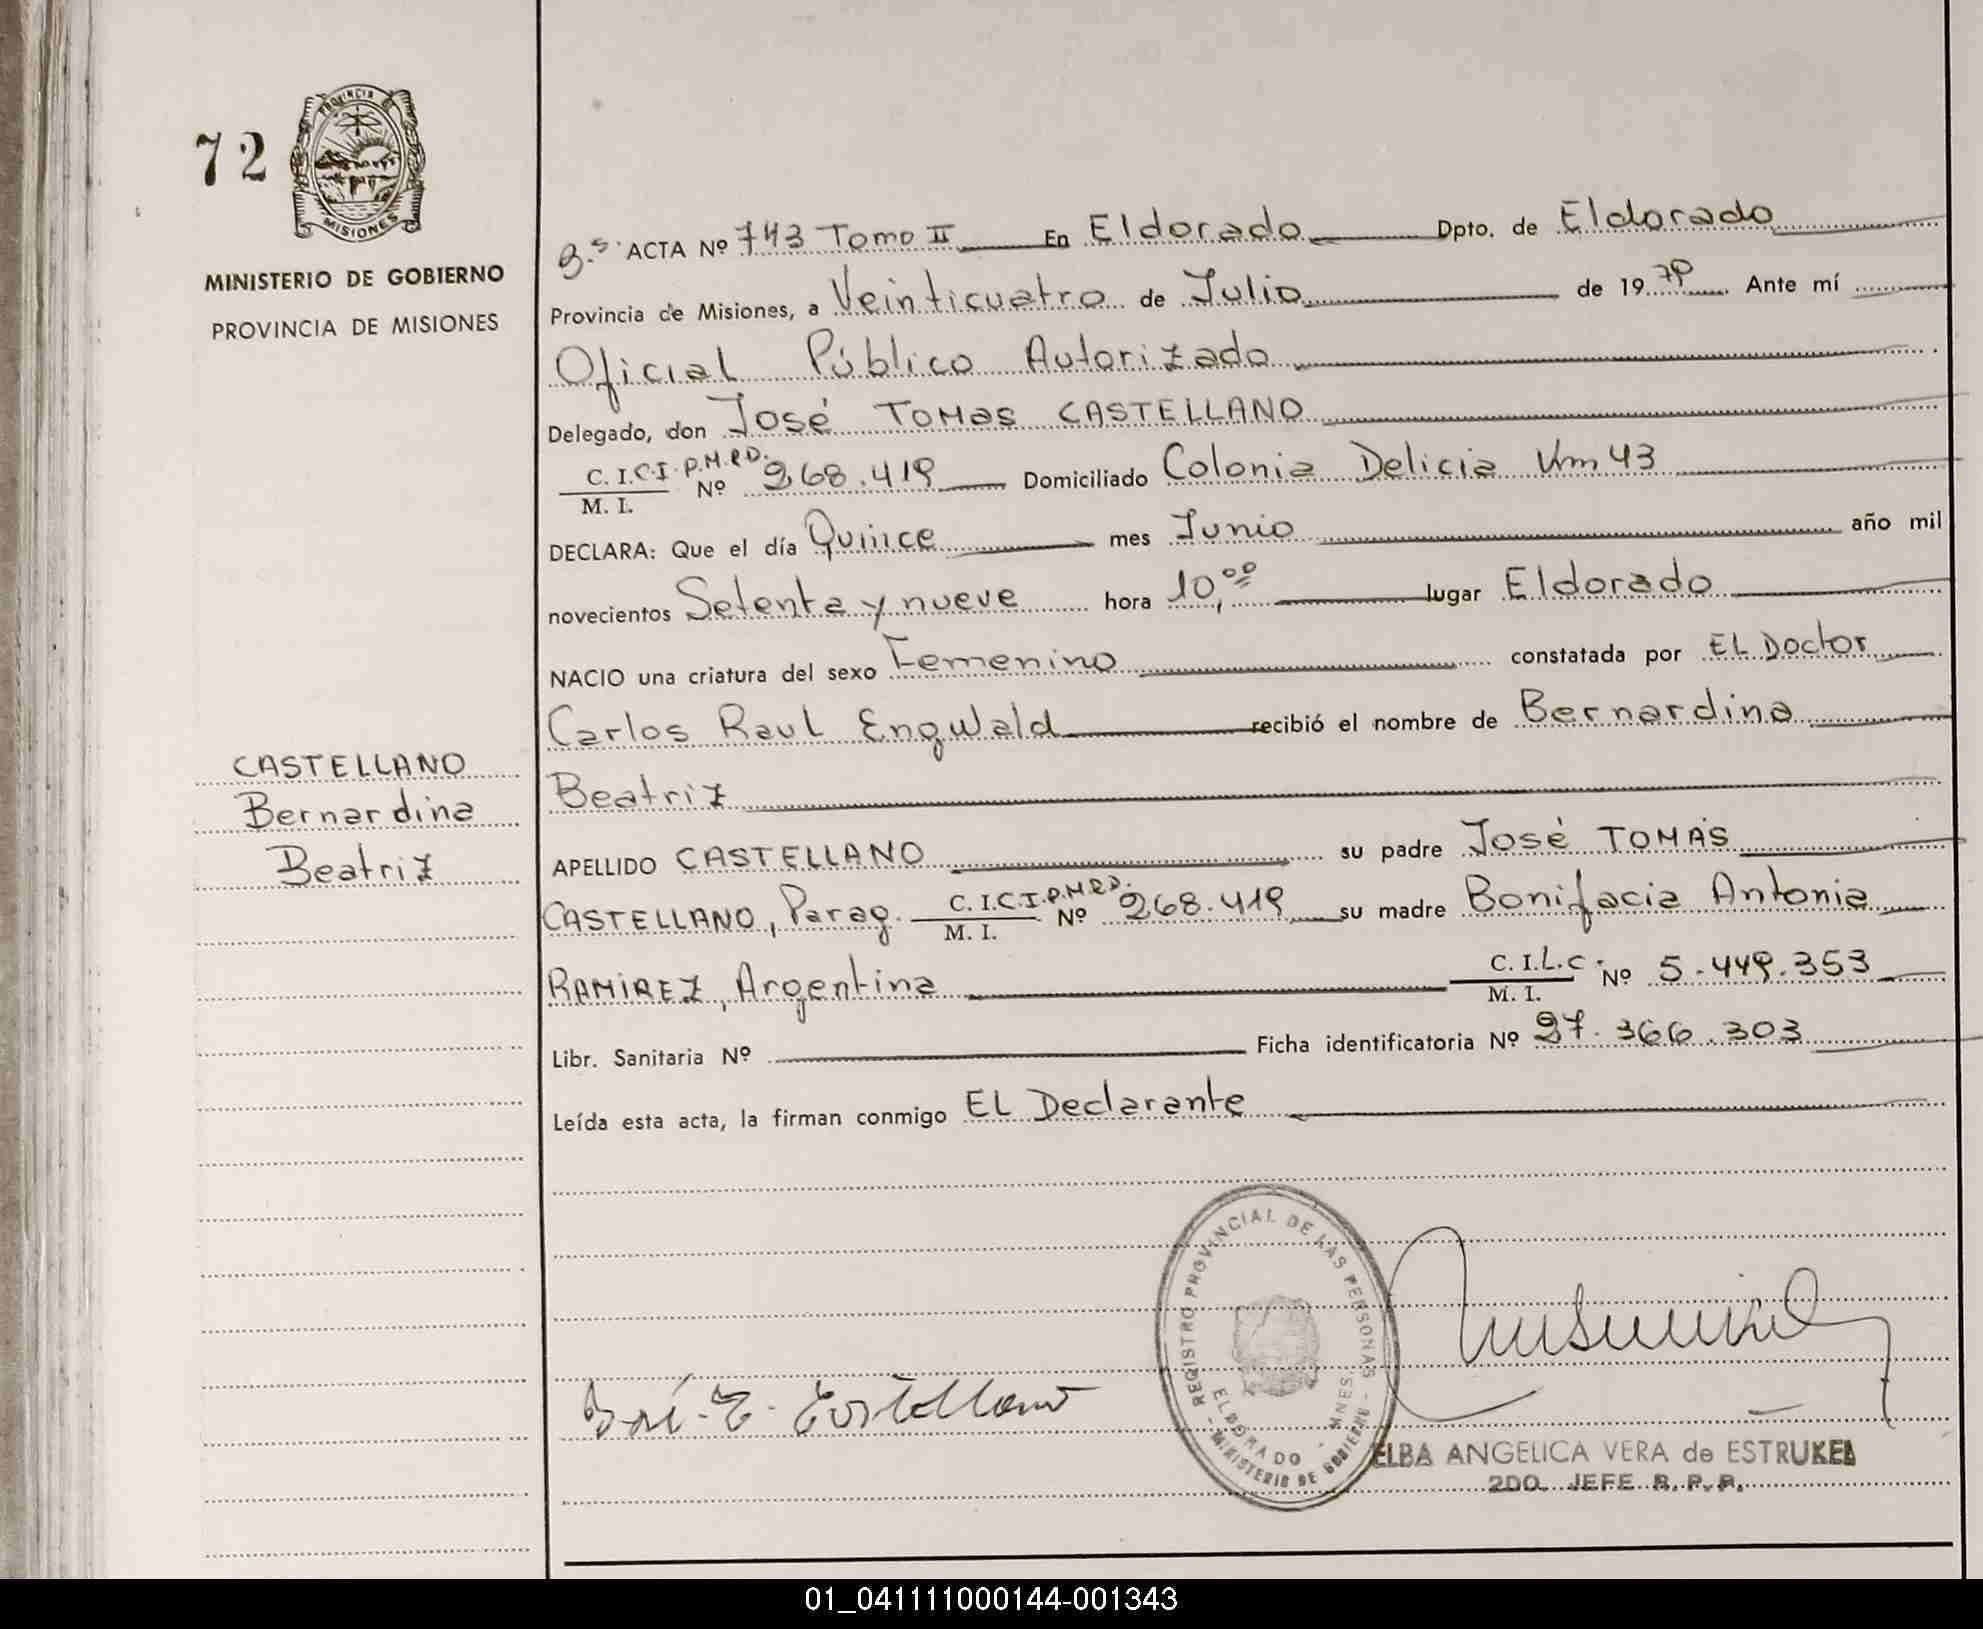 72
PROVINCIA DE
MISIONES
MINISTERIO DE GOBIERNO
PROVINCIA DE MISIONES
ACTA Nº 743 Tomo II En Eldorado Dpto. de Eldorado
Provincia de Misiones, a Veinticuatro de Julio de 1979 Ante mí
Oficial Público Autorizado
Delegado, don José Tomas CASTELLANO
C. I. C.I.P.M.RD. Nº 268.419 Domiciliado Colonia Delicia Km 43
M. I.
DECLARA: Que el día Quince mes Junio año mil
novecientos Setenta y nueve hora 10,00 lugar Eldorado
NACIO una criatura del sexo Femenino constatada por EL Doctor
Carlos Raul Engwald recibió el nombre de Bernardina
Beatriz
CASTELLANO
Bernardina
Beatriz
APELLIDO CASTELLANO su padre José TOMÁS
CASTELLANO, Parag. C. I. C.I.P.M.RD. Nº 268.419 su madre Bonifacia Antonia
M. I.
RAMIREZ, Argentina C. I. L.C. Nº 5.449.353
M. I.
Libr. Sanitaria Nº Ficha identificatoria Nº 27.366.303
Leída esta acta, la firman conmigo EL Declarante
REGISTRO PROVINCIAL DE LAS PERSONAS
ELDORADO - MNES.
- MINISTERIO DE GOBIERNO -
José T. Castellano
ELBA ANGELICA VERA de ESTRUKEL
2DO. JEFE R. P. P.
01_041111000144-001343